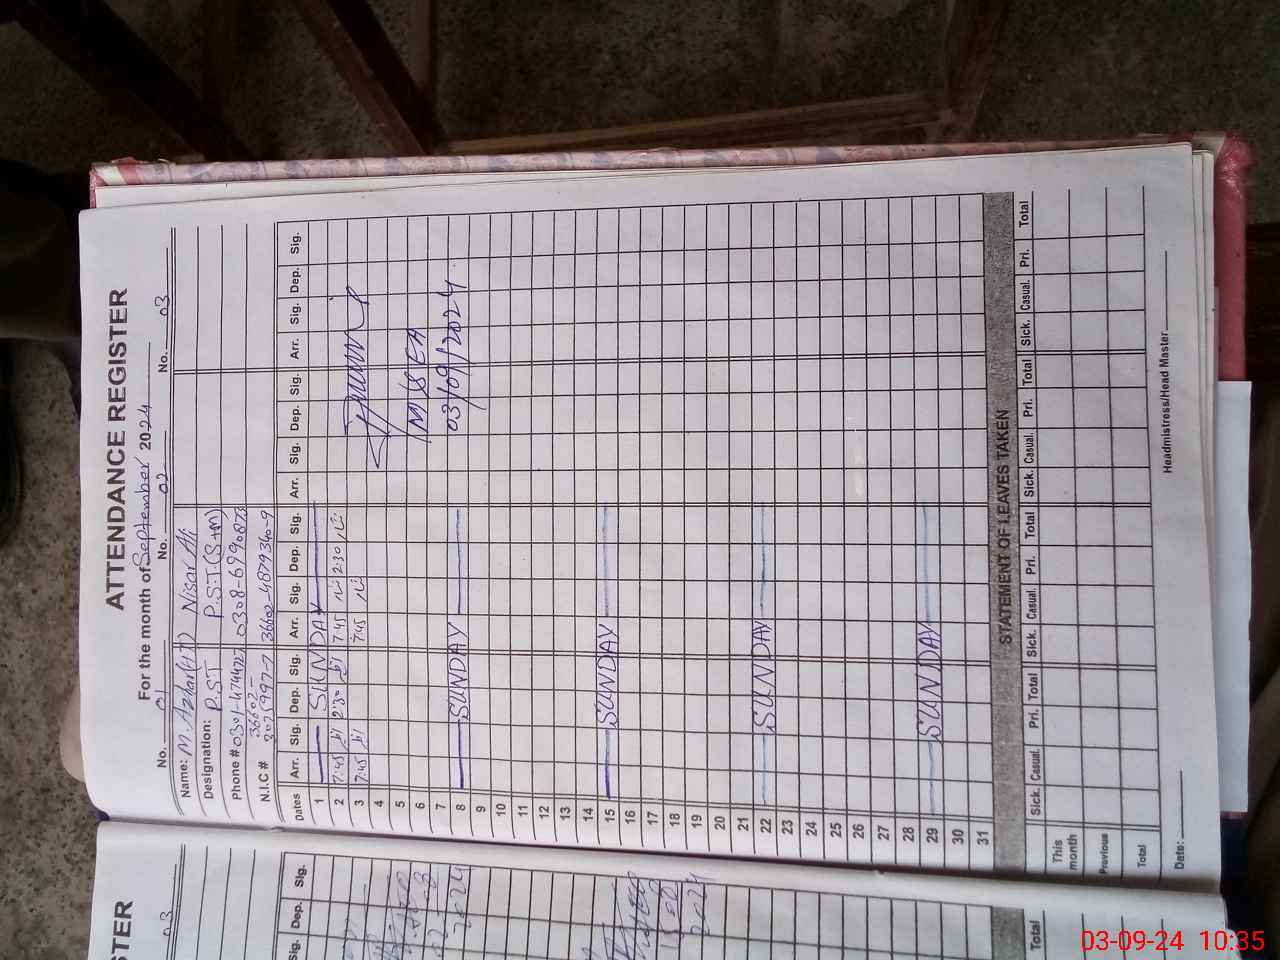 ATTENDANCE REGISTER
For the month of September 2024
No. 01 No. 02 No. 03
Name: M. Azhar Nisar Ali
Designation: P.S.T P.S.T.(S+M)
Phone # 0301-4744727 0308-6990873
36602-
N.I.C # 3075997-7 36602-4879340-9
Dates Arr. Sig. Dep. Sig. Arr. Sig. Dep. Sig. Arr. Sig. Dep. Sig. Arr. Sig. Dep. Sig.
1 SUNDAY
2 7:45 2:30 7:45 2:30
3 7:45 7:45
4
5
6
7 03/09/2024
8 SUNDAY
9
10
11
12
13
14
15 SUNDAY
16
17
18
19
20
21
22 SUNDAY
23
24
25
26
27
28
29 SUNDAY
30
31
STATEMENT OF LEAVES TAKEN
Sick. Casual. Pri. Total Sick. Casual. Pri. Total Sick. Casual. Pri. Total Sick. Casual. Pri. Total
This month
Previous
Total
Date: Headmistress/Head Master
STER
03
Sig. Dep. Sig.
2024
2024
Total
03-09-24 10:35